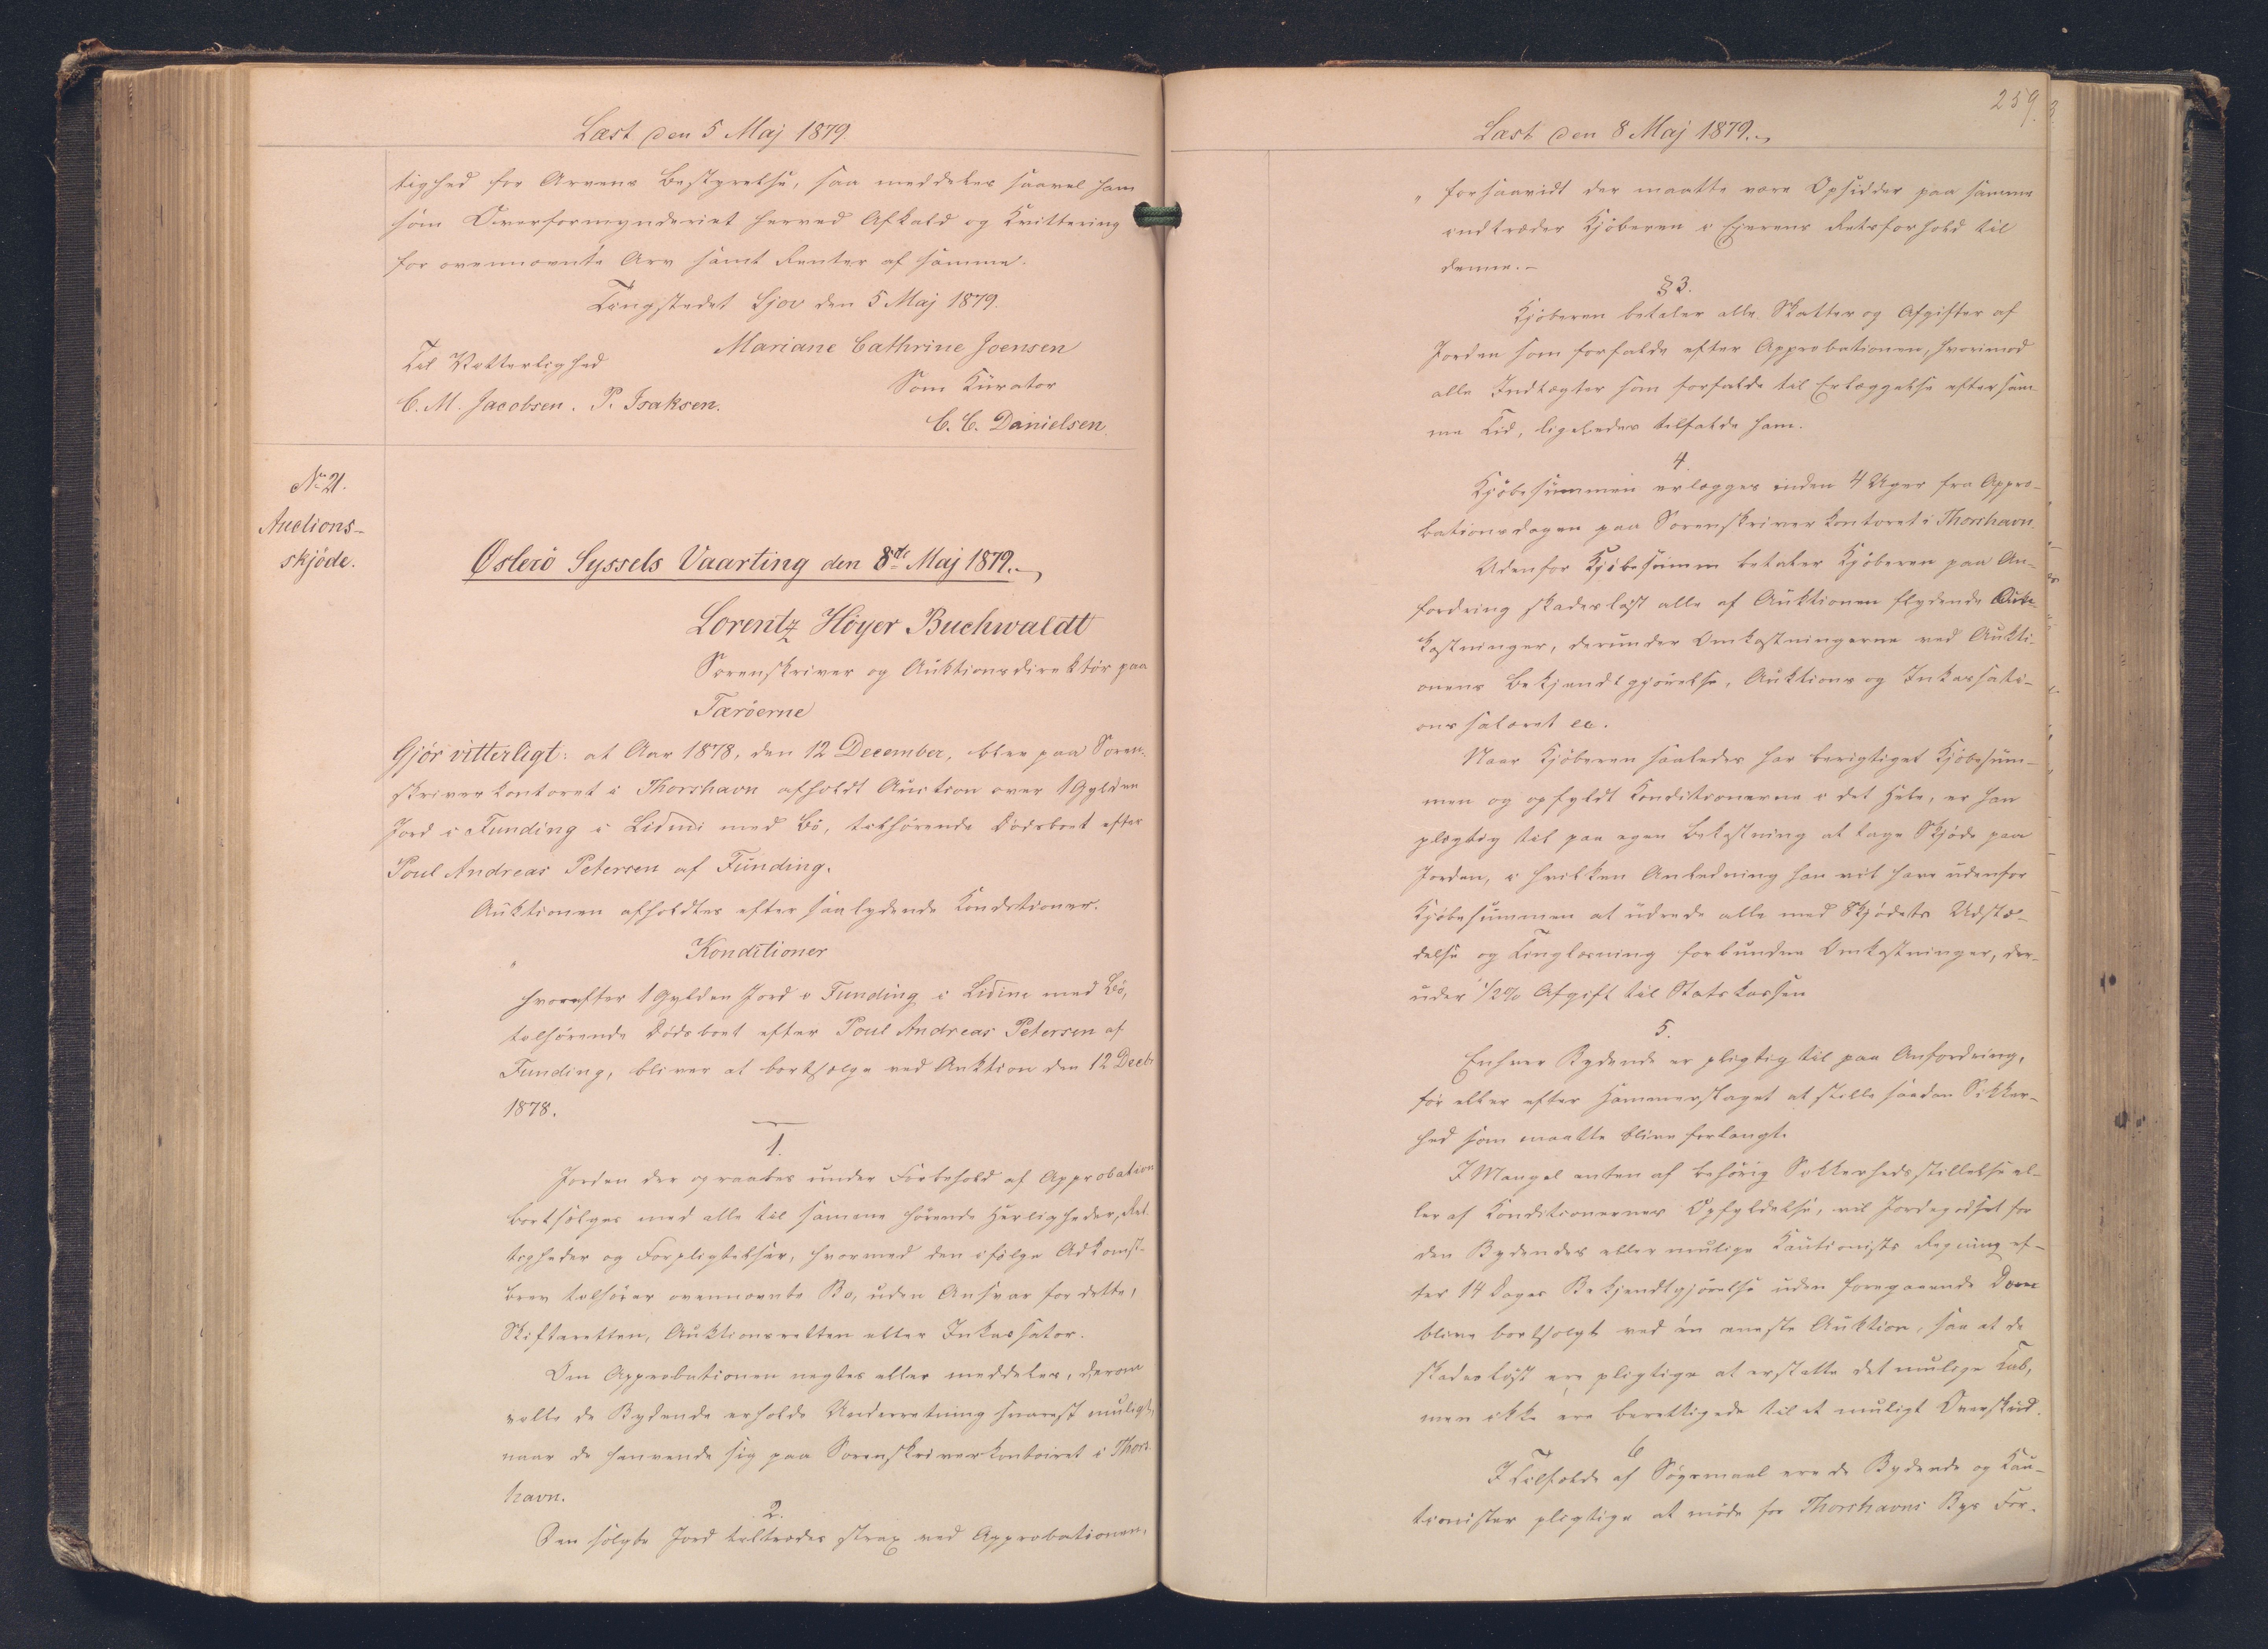 Læst den 5 Maj 1879.
tighed for Arvens Bestyrelse, saa meddeles saavel ham
som Overformynderiet herved Afkald og Kvittering
for ovennævnte Arv samt Renter af samme.
Tingstedet Sjov den 5 Maj 1879.
Mariane Cathrine Joensen
Til Vitterlighed
Som Kurator
C. M. Jacobsen. P. Isaksen.
C. C. Danielsen.
No 21.
Auctions-
skjøde.
Østerö Syssels Vaarting den 8de Maj 1879.
Lorentz Höyer Buchwaldt
Sorenskriver og Auktionsdirektör paa
Færöerne
Gjör vitterligt: at Aar 1878, den 12 December, blev paa Soren-
skriverkontoret i Thorshavn afholdt Auction over 1 Gylden
Jord i Funding i Lidini med Bö, tilhörende Dödsboet efter
Poul Andreas Petersen af Funding.
Auktionen afholdtes efter saalydende Konditioner.
Konditioner
"
hvorefter 1 Gylden Jord i Funding i Lidini med Bö,
tilhörende Dödsboet efter Poul Andreas Petersen af
Funding, bliver at bortsælge ved Auktion den 12 Decbr
1878.
1.
Jorden der opraabes under Forbehold af Approbation
bortsælges med alle til samme hörende Herligheder, Ret-
tigheder og Forpligtelser, hvormed den ifölge Adkomst-
brev tilhörer ovennævnte Bo, uden Ansvar for dette,
Skifteretten, Auktionsretten eller Inkassator.
Om Approbationen negtes eller meddeles, derom
ville de Bydende erholde Underretning snarest muligt,
naar de henvende sig paa Sorenskriverkontoiret i Thors-
havn.
2.
Den solgte Jord tiltrædes strax ved Approbationen,
259.
Læst den 8 Maj 1879.
" forsaavidt der maatte være Opsidder paa samme
indtræder Kjöberen i Ejerens Retsforhold til
denne.-
§ 3.
Kjöberen betaler alle Skatter og Afgifter af
Jorden som forfalde efter Approbationen, hvorimod
alle Indtægter som forfalde til Erlæggelse efter sam-
me Tid, ligeledes tilfalde ham.
4
Kjöbesummen erlægges inden 4 Uger fra Appro-
bationsdagen paa Sorenskriverkontoret i Thorshavn.
Udenfor Kjöbesummen betaler Kjöberen paa An-
fordring skadeslöst alle af Auktionen flydende Om-
kostninger, derunder Omkostningerne ved Aukti-
onens Bekjendtgjörelse, Auktions og Inkassati-
ons salæret ec.
Naar Kjöberen saaledes har berigtiget Kjöbesum-
men og opfyldt Konditionerne i det Hele, er han
pligtig til paa egen Bekostning at tage Skjöde paa
Jorden, i hvilken Anledning han vil have udenfor
Kjöbesummen at udrede alle med Skjödets Udstæ-
delse og Tinglæsning forbundne Omkostninger, der-
under 1/2 % Afgift til Statskassen
5.
Enhver Bydende er pligtig til paa Anfordring,
för eller efter Hammerslaget at stille saadan Sikker-
hed som maatte blive forlangt.
I Mangel enten af behörig Sikkerhedsstillelse el-
ler af Konditionernes Opfyldelse, vil Jordegodset for
den Bydendes eller mulige Kautionists Regning ef-
ter 14 Dages Bekjendtgjörelse uden foregaaende Dom
blive bortsolgt ved én eneste Auktion, saa at de
skadeslöst ere pligtige at erstatte det mulige Tab,
men ikke ere berettigede til et muligt Overskud.
6
I Tilfælde af Sögsmaal ere de Bydende og Kau-
tionister pligtige at möde for Thorshavns Bys For-